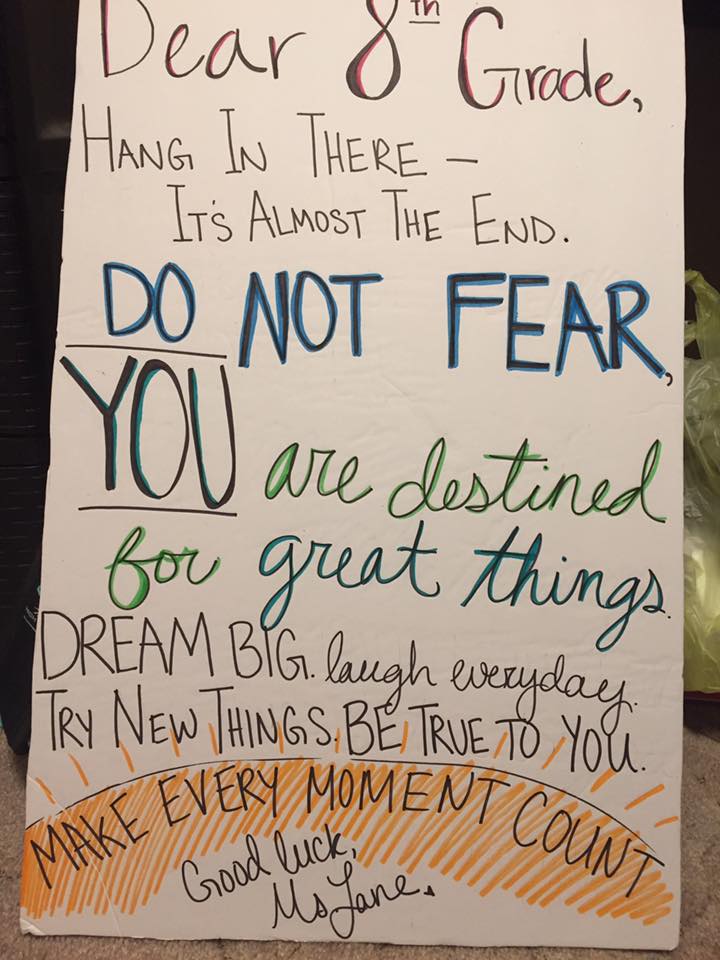 Dear 8th Grade,
HANG IN THERE –
IT'S ALMOST THE END.
DO NOT FEAR,
YOU are destined
for great things.
DREAM BIG. laugh everyday.
TRY NEW THINGS. BE TRUE TO YOU.
MAKE EVERY MOMENT COUNT
Good luck,
Ms Lane.